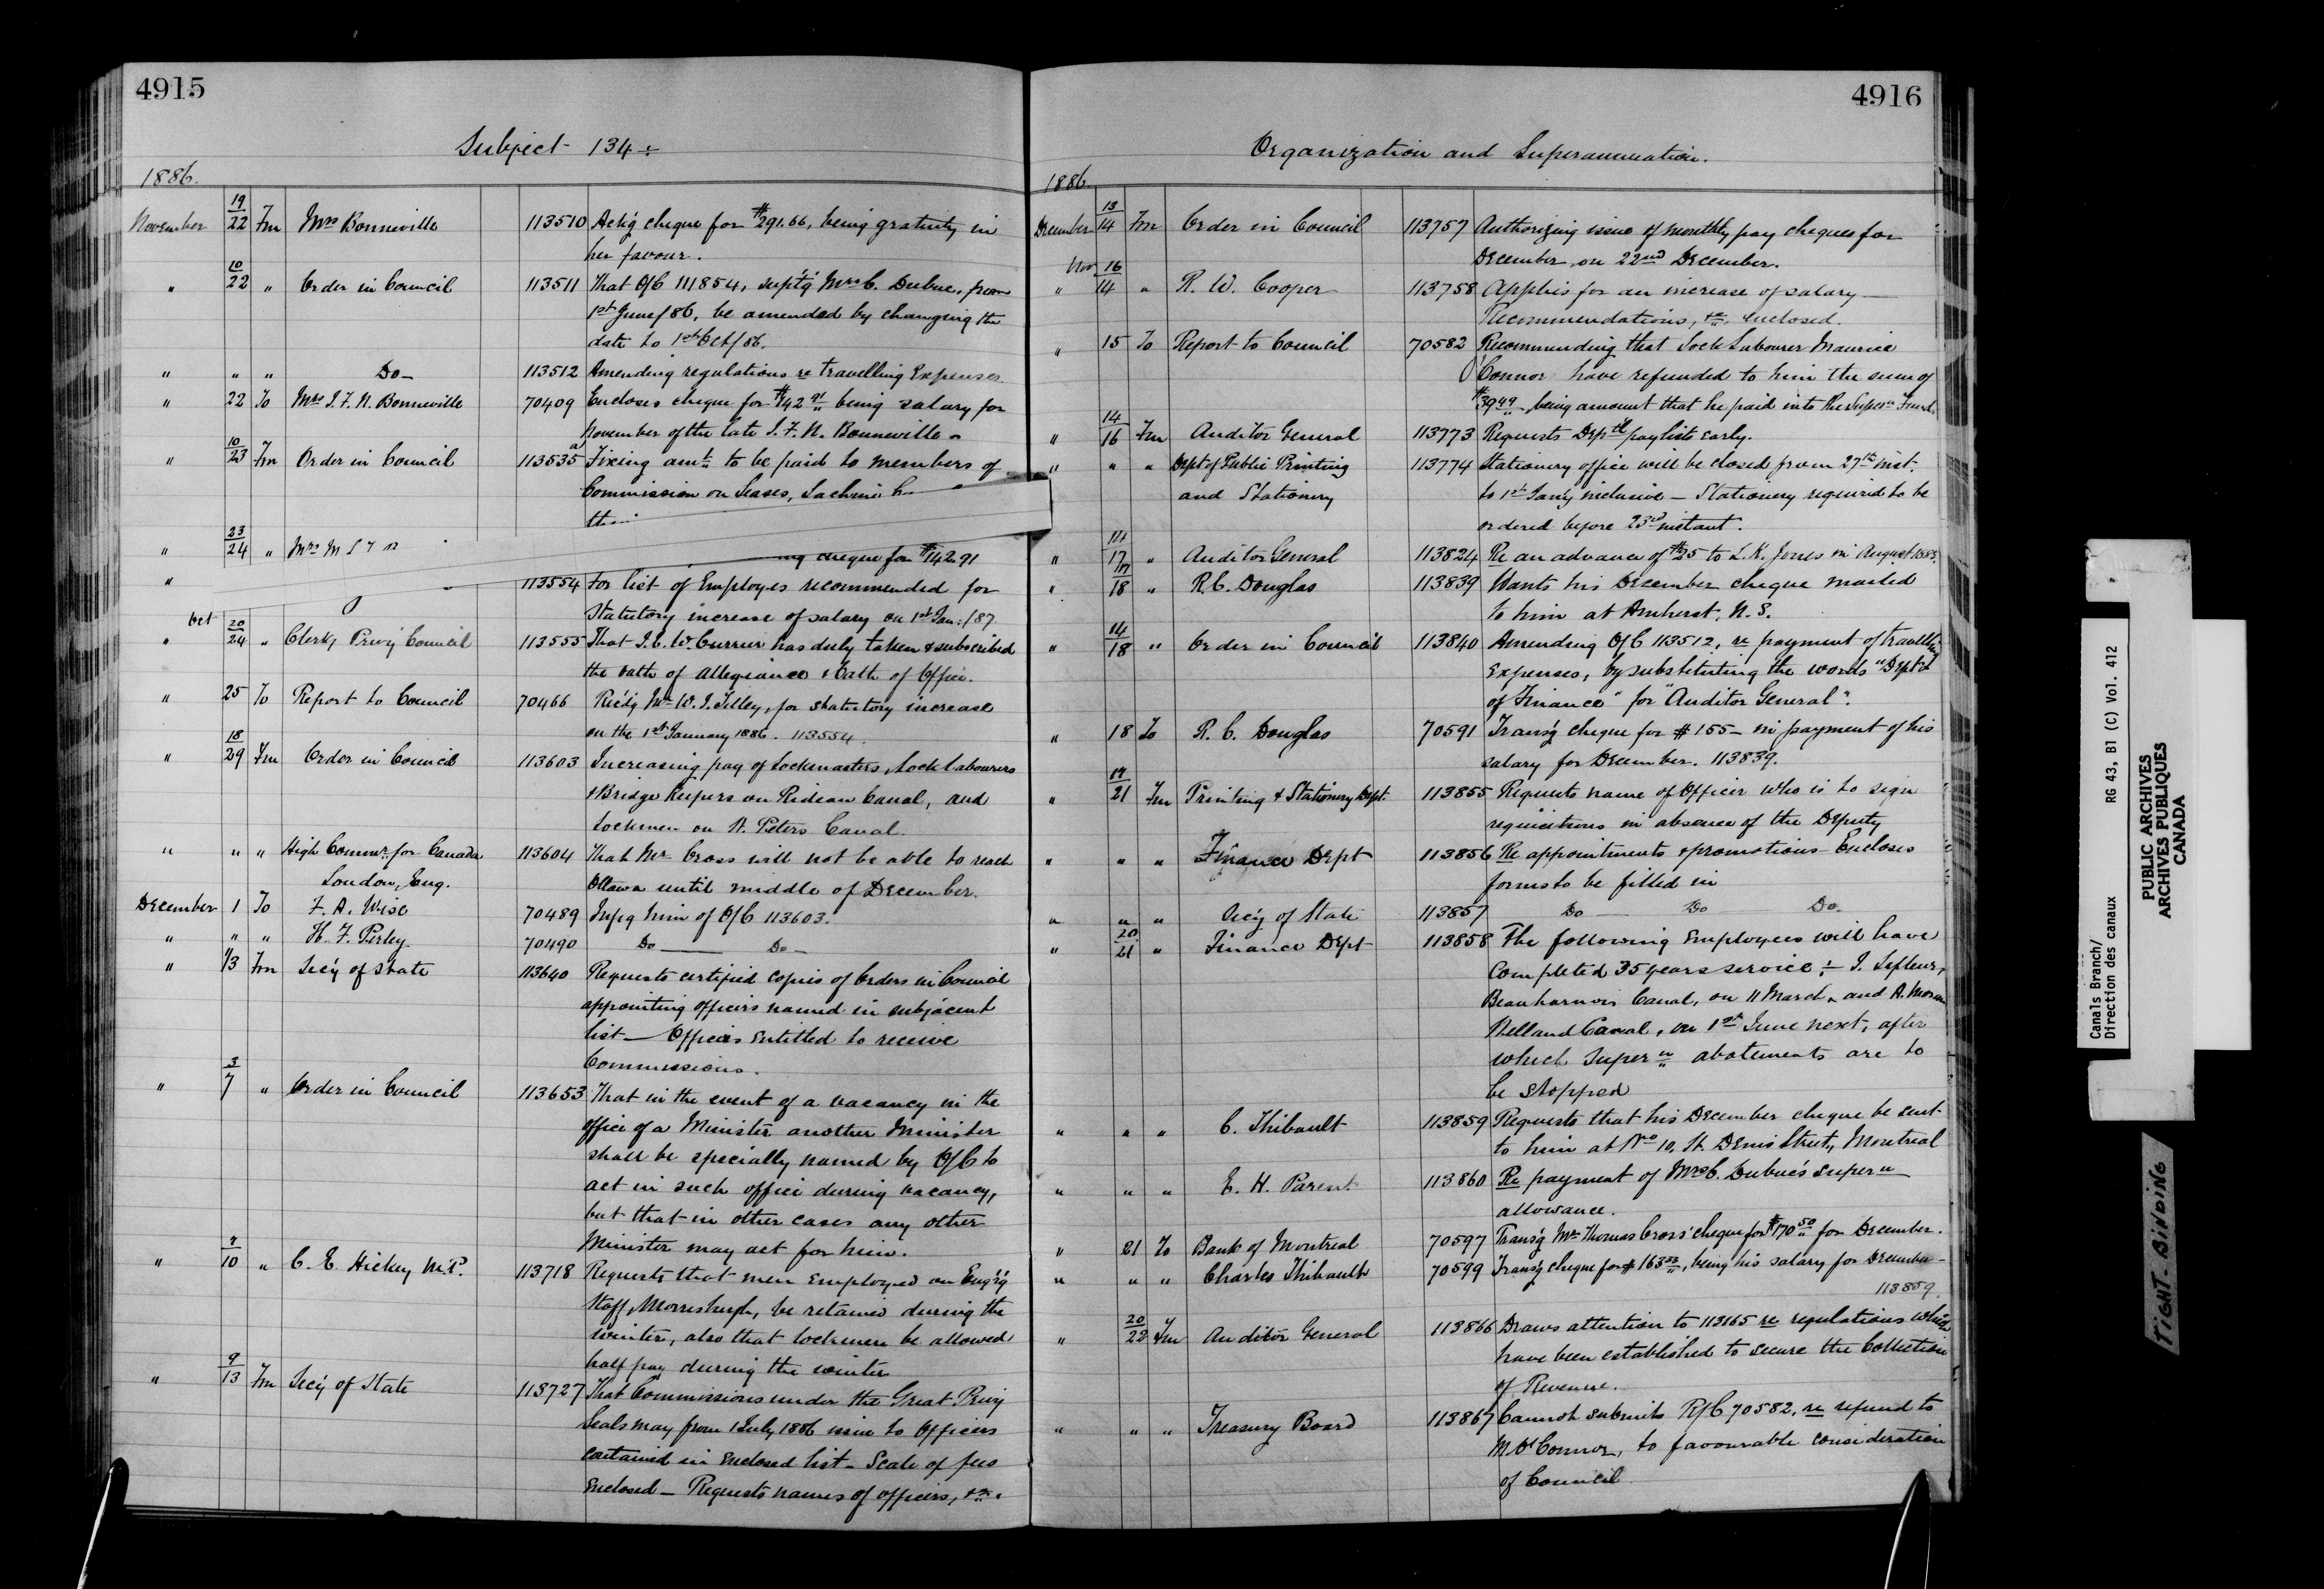 4915
Subject 134 :
1886.
November 19/22 Fm Mrs Bonneville 113510 Ack'g cheque for $291.66, being gratuity in
her favour.
" 10/22 " Order in Council 113511 That O/C 111854, sup't'g Mrs C. Dubuc, from
1st June/86, be amended by changing the
date to 1st Oct/86.
" " " Do 113512 Amending regulations re travelling Expenses.
" 22 To Mrs J. F. N. Bonneville 70409 Encloses cheque for $142 91 being salary for
November of the late J. F. N. Bonneville.
" 10/23 Fm Order in Council 113535a Fixing amt to be paid to members of
Commission on Leases, Lachine
" 23/24 " Mrs
cheque for $142.91
" 113554 For list of Employes recommended for
Statutory increase of salary on 1st Jan: /87.
" Oct 20/24 " Clerk, Privy Council 113555 That J. C. W. Currier has duly taken & subscribed
the oath of allegiance & oath of Office.
" 25 To Report to Council 70466 Rec'd'g Mr W. J. Tilley, for statutory increase
on the 1st January 1886. 113554.
" 18/29 Fm Order in Council 113603 Increasing pay of Lockmasters, Lock Labourers
& Bridge Keepers on Rideau Canal, and
Lockmen on St. Peters Canal.
" " " High Commr. for Canada 113604 That Mr Cross will not be able to reach
London, Eng. Ottawa until middle of December.
December 1 To F. A. Wise 70489 Inf'g him of O/C 113603.
" " " H. F. Perley 70490 Do Do
" 1/3 Fm Sec'y of State 113640 Requests certified copies of Orders in Council
appointing officers named in subjacent
list — Officers Entitled to receive
Commissions.
" 3/7 " Order in Council 113653 That in the event of a vacancy in the
office of a Minister another Minister
shall be specially named by O/C to
act in such office during vacancy,
but that in other cases any other
Minister may act for him.
" 7/10 " C. E. Hickey M.P. 113718 Requests that men Employed on Eng'r'g
Staff, Morrisburgh, be retained during the
winter, also that lockmen be allowed
half pay during the winter
" 9/13 Fm Sec'y of State 113727 That Commissions under the Great Privy
Seals may from 1 July 1886 issue to Officers
contained in Enclosed list – Scale of fees
Enclosed – Requests names of officers, &c.
4916
Organization and Superannuation.
1886.
December 13/14 Fm Order in Council 113757 Authorizing issue of monthly pay cheques for
December, on 22nd December.
" Nov 16/14 " R. W. Cooper 113758 Applies for an increase of salary —
Recommendations, &c, enclosed.
" 15 To Report to Council 70582 Recommending that Lock Labourer Maurice
O'Connor have refunded to him the sum of
$39 49, being amount that he paid into the Supern Fund.
" 14/16 Fm Auditor General 113773 Requests Dep'tl paylists early.
" " " Dept of Public Printing 113774 Stationery office will be closed from 27th inst.
and Stationery to 1st Jan'y inclusive – Stationery required to be
ordered before 23rd instant.
" 17 " Auditor General 113824 Re an advance of $25 to L. K. Jones in August 1885.
" 17/18 " R. C. Douglas 113839 Wants his December cheque mailed
to him at Amherst, N. S.
" 14/18 " Order in Council 113840 Amending O/C 113512, re payment of travelling
Expenses, by substituting the words "Dept
of Finance" for "Auditor General".
" 18 To R. C. Douglas 70591 Trans'g cheque for $155 — in payment of his
salary for December. 113839.
" 21 Fm Printing & Stationery Dept. 113855 Requests name of Officer who is to sign
requisitions in absence of the Deputy
" " " Finance Dept 113856 Re appointments & promotions Encloses
forms to be filled in
" " " Sec'y of State 113857 Do Do Do.
" 20/21 " Finance Dept 113858 The following Employees will have
completed 35 years service :– J. Lefleur,
Beauharnois Canal, on 11 March, and A.
Welland Canal, on 1st June next, after
which Supern abatements are to
be stopped
" " " C. Thibault 113859 Requests that his December cheque be sent
to him at No 10, St. Denis Street, Montreal
" " " E. H. Parent 113860 Re payment of Mrs C. Dubuc's Supern
allowance.
" 21 To Bank of Montreal 70597 Trans'g Mr Thomas Cross' cheque for $170 50 for December.
" " " Charles Thibault 70599 Trans'g cheque for $163 33, being his salary for December –
113859.
" 20/22 Fm Auditor General 113866 Draws attention to 113165 re regulations which
have been established to secure the Collection
of Revenue.
" " " Treasury Board 113867 Cannot submit R/C 70582, re refund to
M. O'Connor, to favourable consideration
of Council
Canals Branch/
Direction des canaux RG 43, B1 (C) Vol. 412
PUBLIC ARCHIVES
ARCHIVES PUBLIQUES
CANADA
TIGHT BINDING